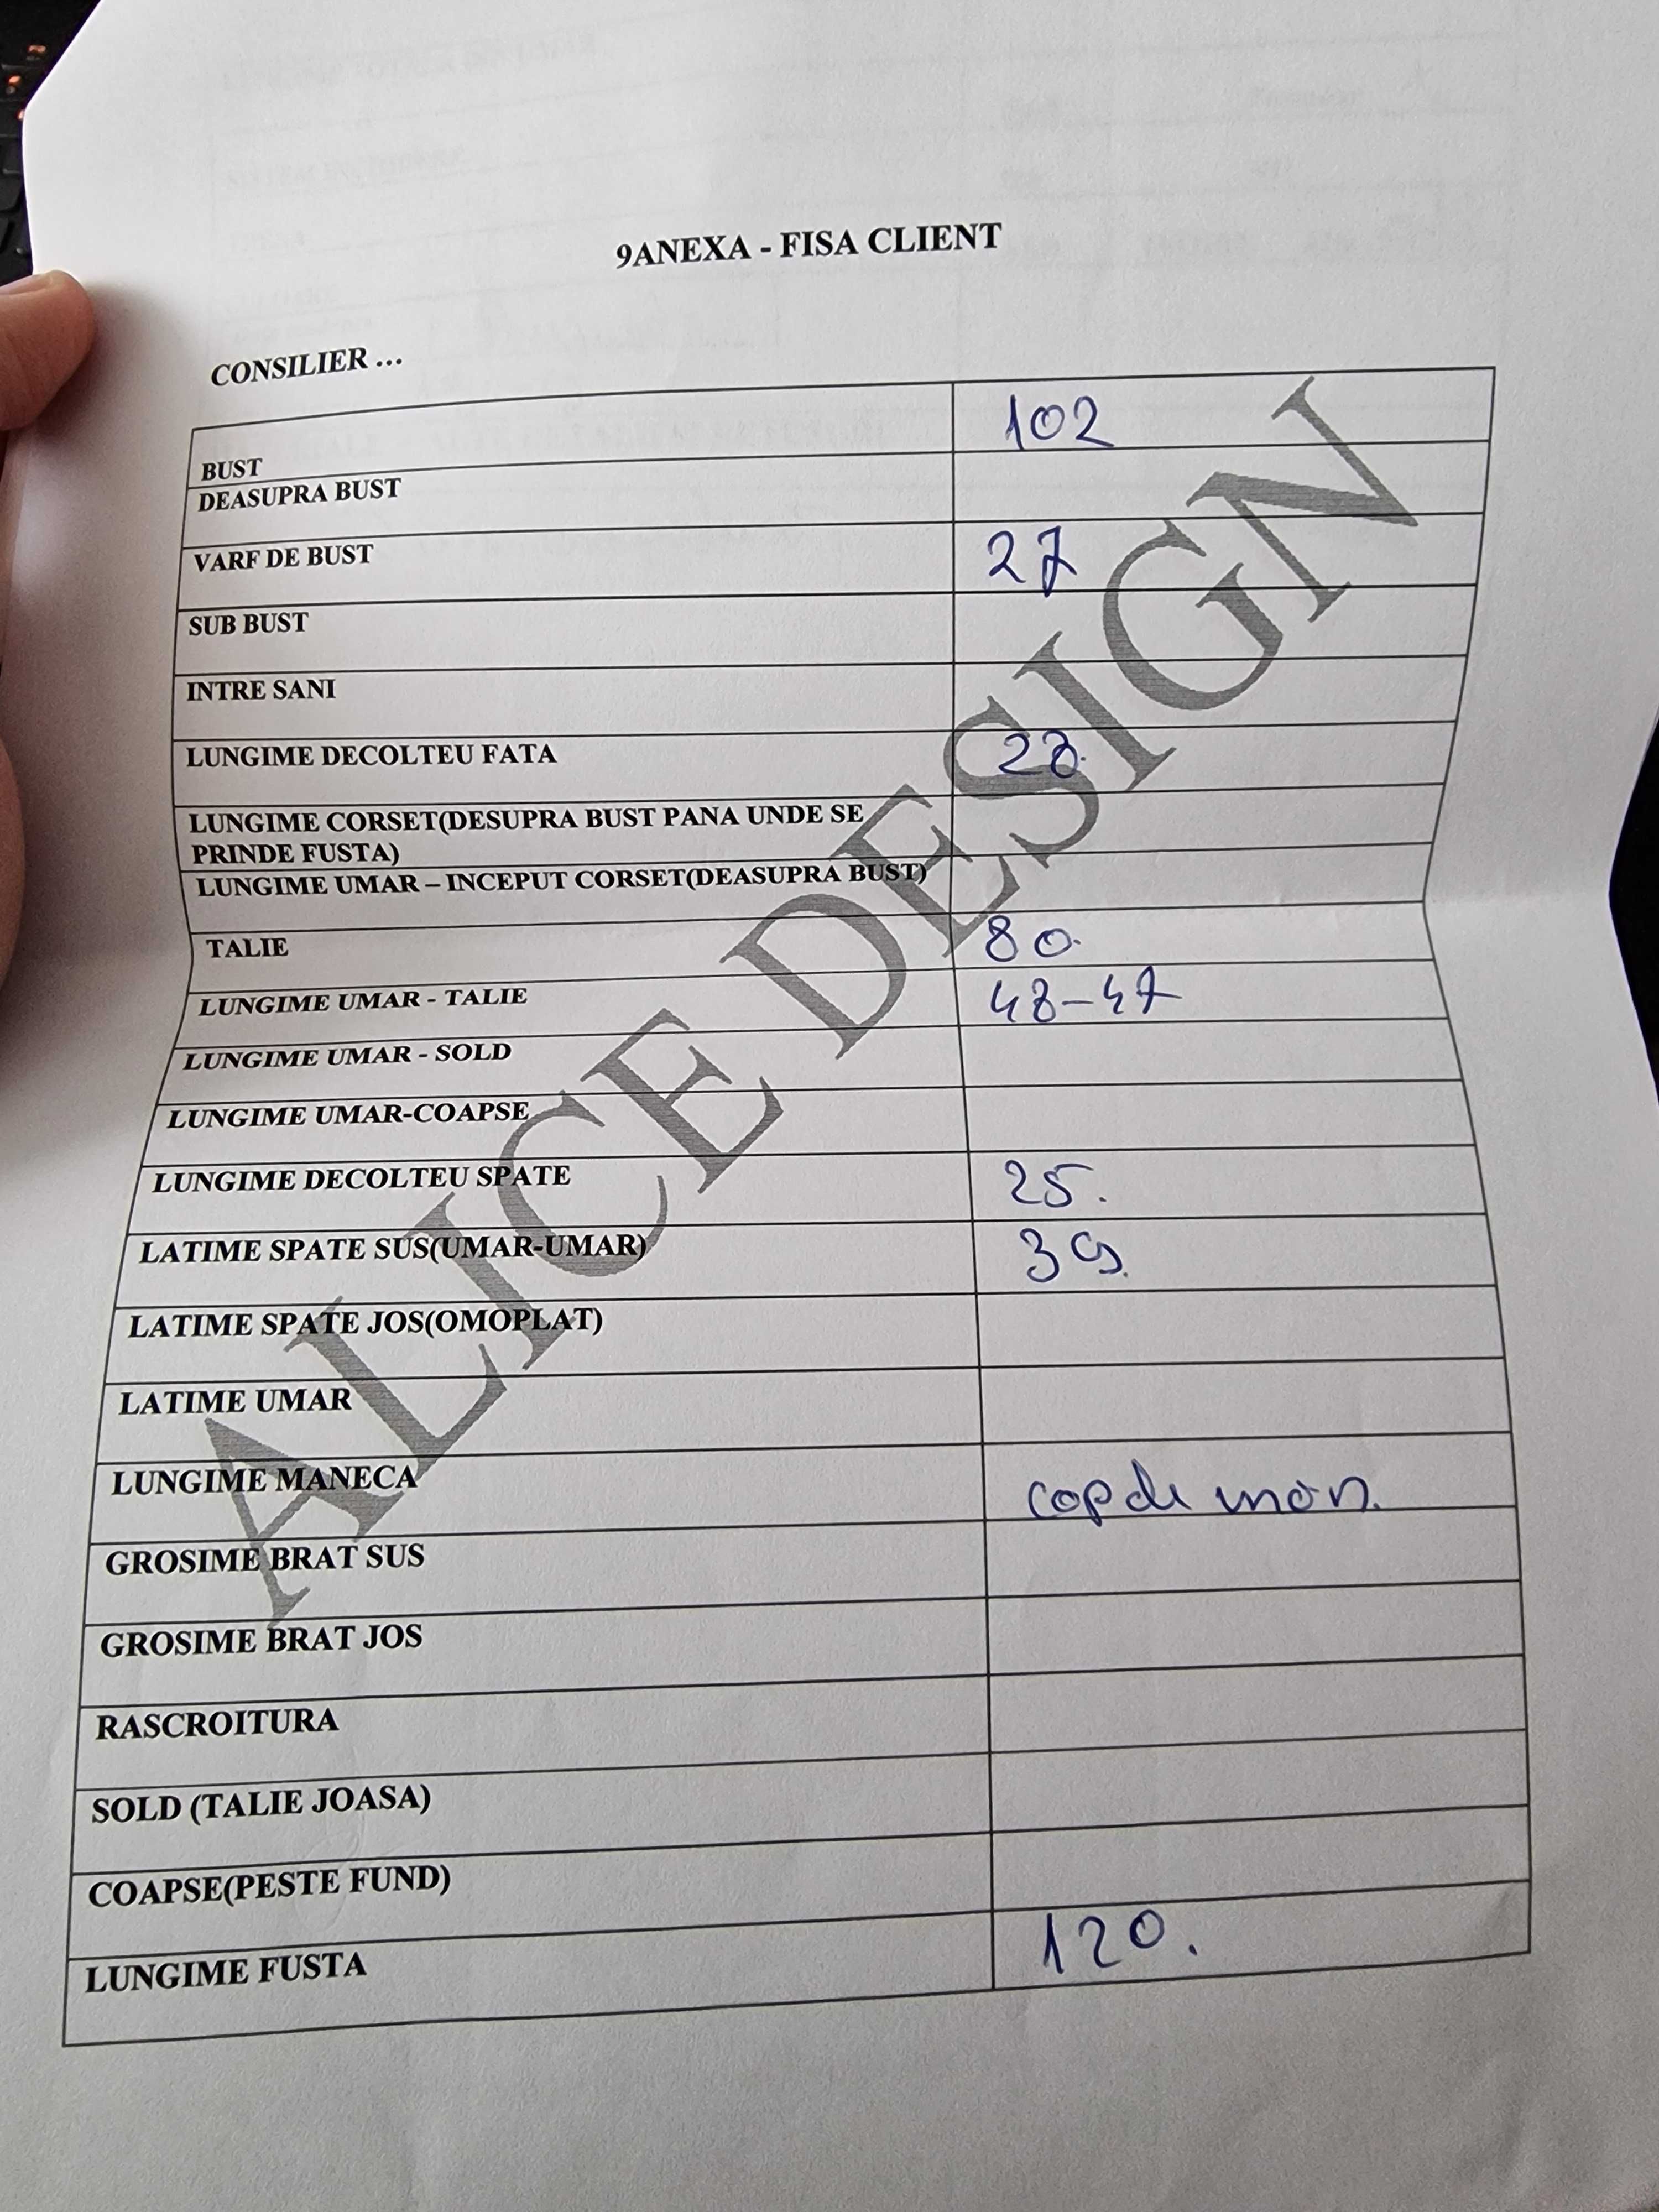 9ANEXA - FISA CLIENT
CONSILIER ...
BUST 102
DEASUPRA BUST
VARF DE BUST 27
SUB BUST
INTRE SANI
LUNGIME DECOLTEU FATA 28.
LUNGIME CORSET(DESUPRA BUST PANA UNDE SE
PRINDE FUSTA)
LUNGIME UMAR – INCEPUT CORSET(DEASUPRA BUST)
TALIE 80.
LUNGIME UMAR - TALIE 48-47
LUNGIME UMAR - SOLD
LUNGIME UMAR-COAPSE
LUNGIME DECOLTEU SPATE 25.
LATIME SPATE SUS(UMAR-UMAR) 39.
LATIME SPATE JOS(OMOPLAT)
LATIME UMAR
LUNGIME MANECA cap de mân.
GROSIME BRAT SUS
GROSIME BRAT JOS
RASCROITURA
SOLD (TALIE JOASA)
COAPSE(PESTE FUND)
LUNGIME FUSTA 120.
ALICE DESIGN